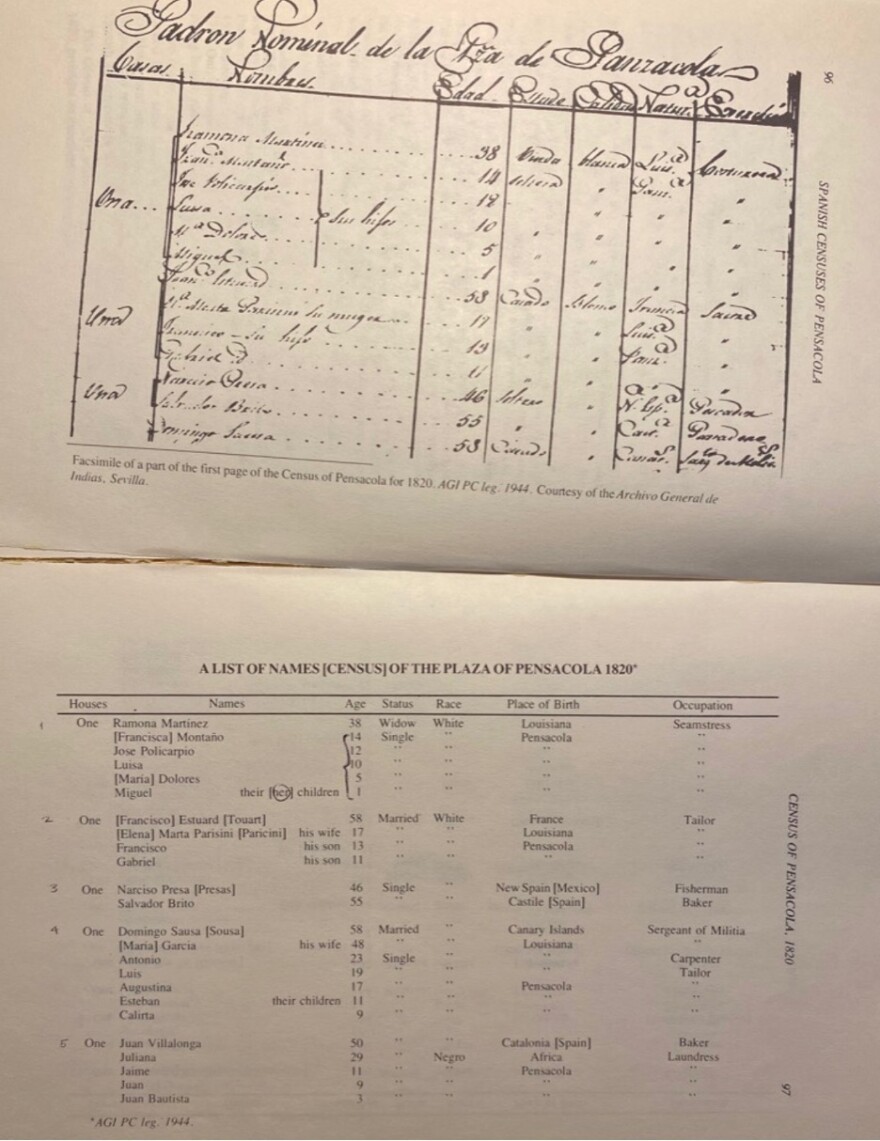 Padron Nominal de la Pza de Panzacola
Casas. Nombres. Edad. Estado Calidad Natur.ª Exercicio
Ramona Martinez 38 Viuda blanca Luis.ª Costurera
Fran.ca Montaño 14 soltera " Pan.ª "
Jose Policarpio 12 " " "
Una... Luisa sus hijos 10 " " " "
M.ª Dolores 5 " " " "
Miguel 1 " " " "
Fran.co Estuard 58 Casado blanco Francia Sastre
Una M.ª Marta Paricini su muger 17 " " Luis.ª "
Francisco su hijo 13 " Panz.ª "
Gabriel 11 " " "
Una Narciso Presa 46 soltero " N. Esp.ª Pescador
Salvador Brito 55 " " Panadero
Domingo Sausa 58 Casado " Canar.s
96
SPANISH CENSUSES OF PENSACOLA
Facsimile of a part of the first page of the Census of Pensacola for 1820. AGI PC leg. 1944. Courtesy of the Archivo General de
Indias, Sevilla.
A LIST OF NAMES [CENSUS] OF THE PLAZA OF PENSACOLA 1820*
Houses Names Age Status Race Place of Birth Occupation
1 One Ramona Martinez 38 Widow White Louisiana Seamstress
[Francisca] Montaño 14 Single " Pensacola "
Jose Policarpio 12 " " " "
Luisa 10 " " " "
[María] Dolores 5 " " " "
Miguel their [her] children 1 " " " "
2 One [Francisco] Estuard [Touart] 58 Married White France Tailor
[Elena] Marta Parisini [Paricini] his wife 17 " " Louisiana "
Francisco his son 13 " " Pensacola "
Gabriel his son 11 " " " "
3 One Narciso Presa [Presas] 46 Single " New Spain [Mexico] Fisherman
Salvador Brito 55 " " Castile [Spain] Baker
4 One Domingo Sausa [Sousa] 58 Married " Canary Islands Sergeant of Militia
[Maria] Garcia his wife 48 " " Louisiana "
Antonio 23 Single " " Carpenter
Luis 19 " " " Tailor
Augustina 17 " " Pensacola "
Esteban their children 11 " " " "
Calirta 9 " " " "
5 One Juan Villalonga 50 " " Catalonia [Spain] Baker
Juliana 29 " Negro Africa Laundress
Jaime 11 " " Pensacola "
Juan 9 " " " "
Juan Bautista 3 " " " "
*AGI PC leg. 1944.
CENSUS OF PENSACOLA, 1820
97